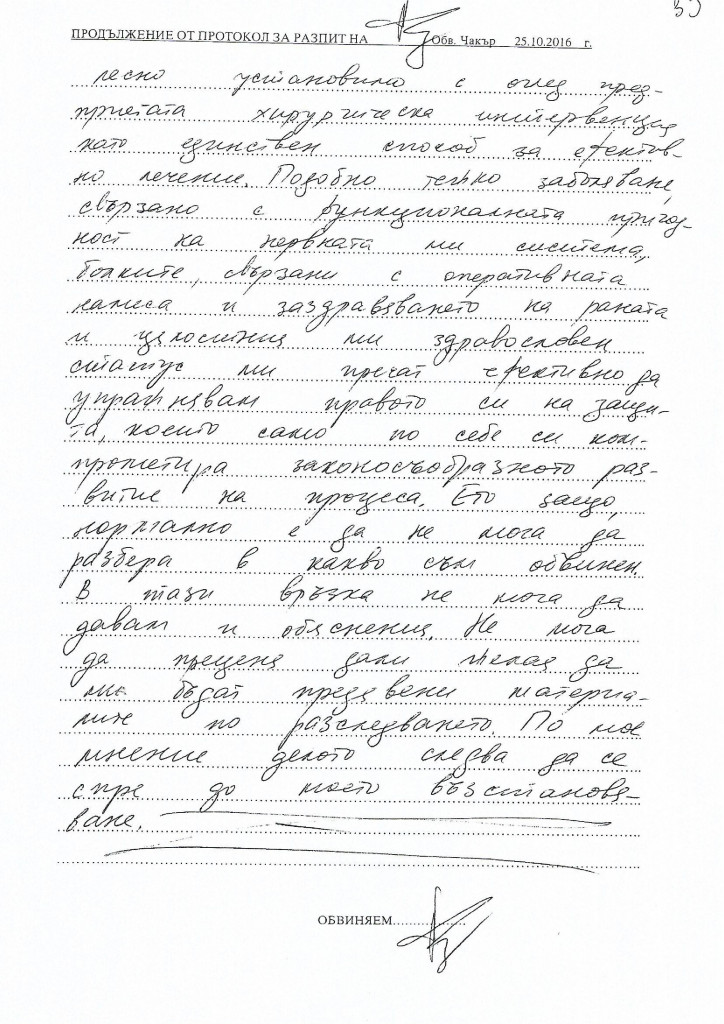 ПРОДЪЛЖЕНИЕ ОТ ПРОТОКОЛ ЗА РАЗПИТ НА Обв. Чакър 25.10.2016 г.
лесно установимо с оглед пред-
приетата хирургическа интервенция
като единствен способ за ефектив-
но лечение. Подобно тежко заболяване,
свързано с функционалната пригод-
ност на нервната ми система,
болките, свързани с оперативната
намеса и заздравяването на раната
и целостния ми здравословен
статус ми пречат ефективно да
упражнявам правото си на защи-
та, което само по себе си ком-
прометира законосъобразното раз-
витие на процеса. Ето защо,
нормално е да не мога да
разбера в какво съм обвинен.
В тази връзка не мога да
давам и обяснения. Не мога
да преценя дали желая да
ми бъдат предявени материа-
лите по разследването. По мое
мнение делото следва да се
спре до моето възстановя-
ване.
ОБВИНЯЕМ